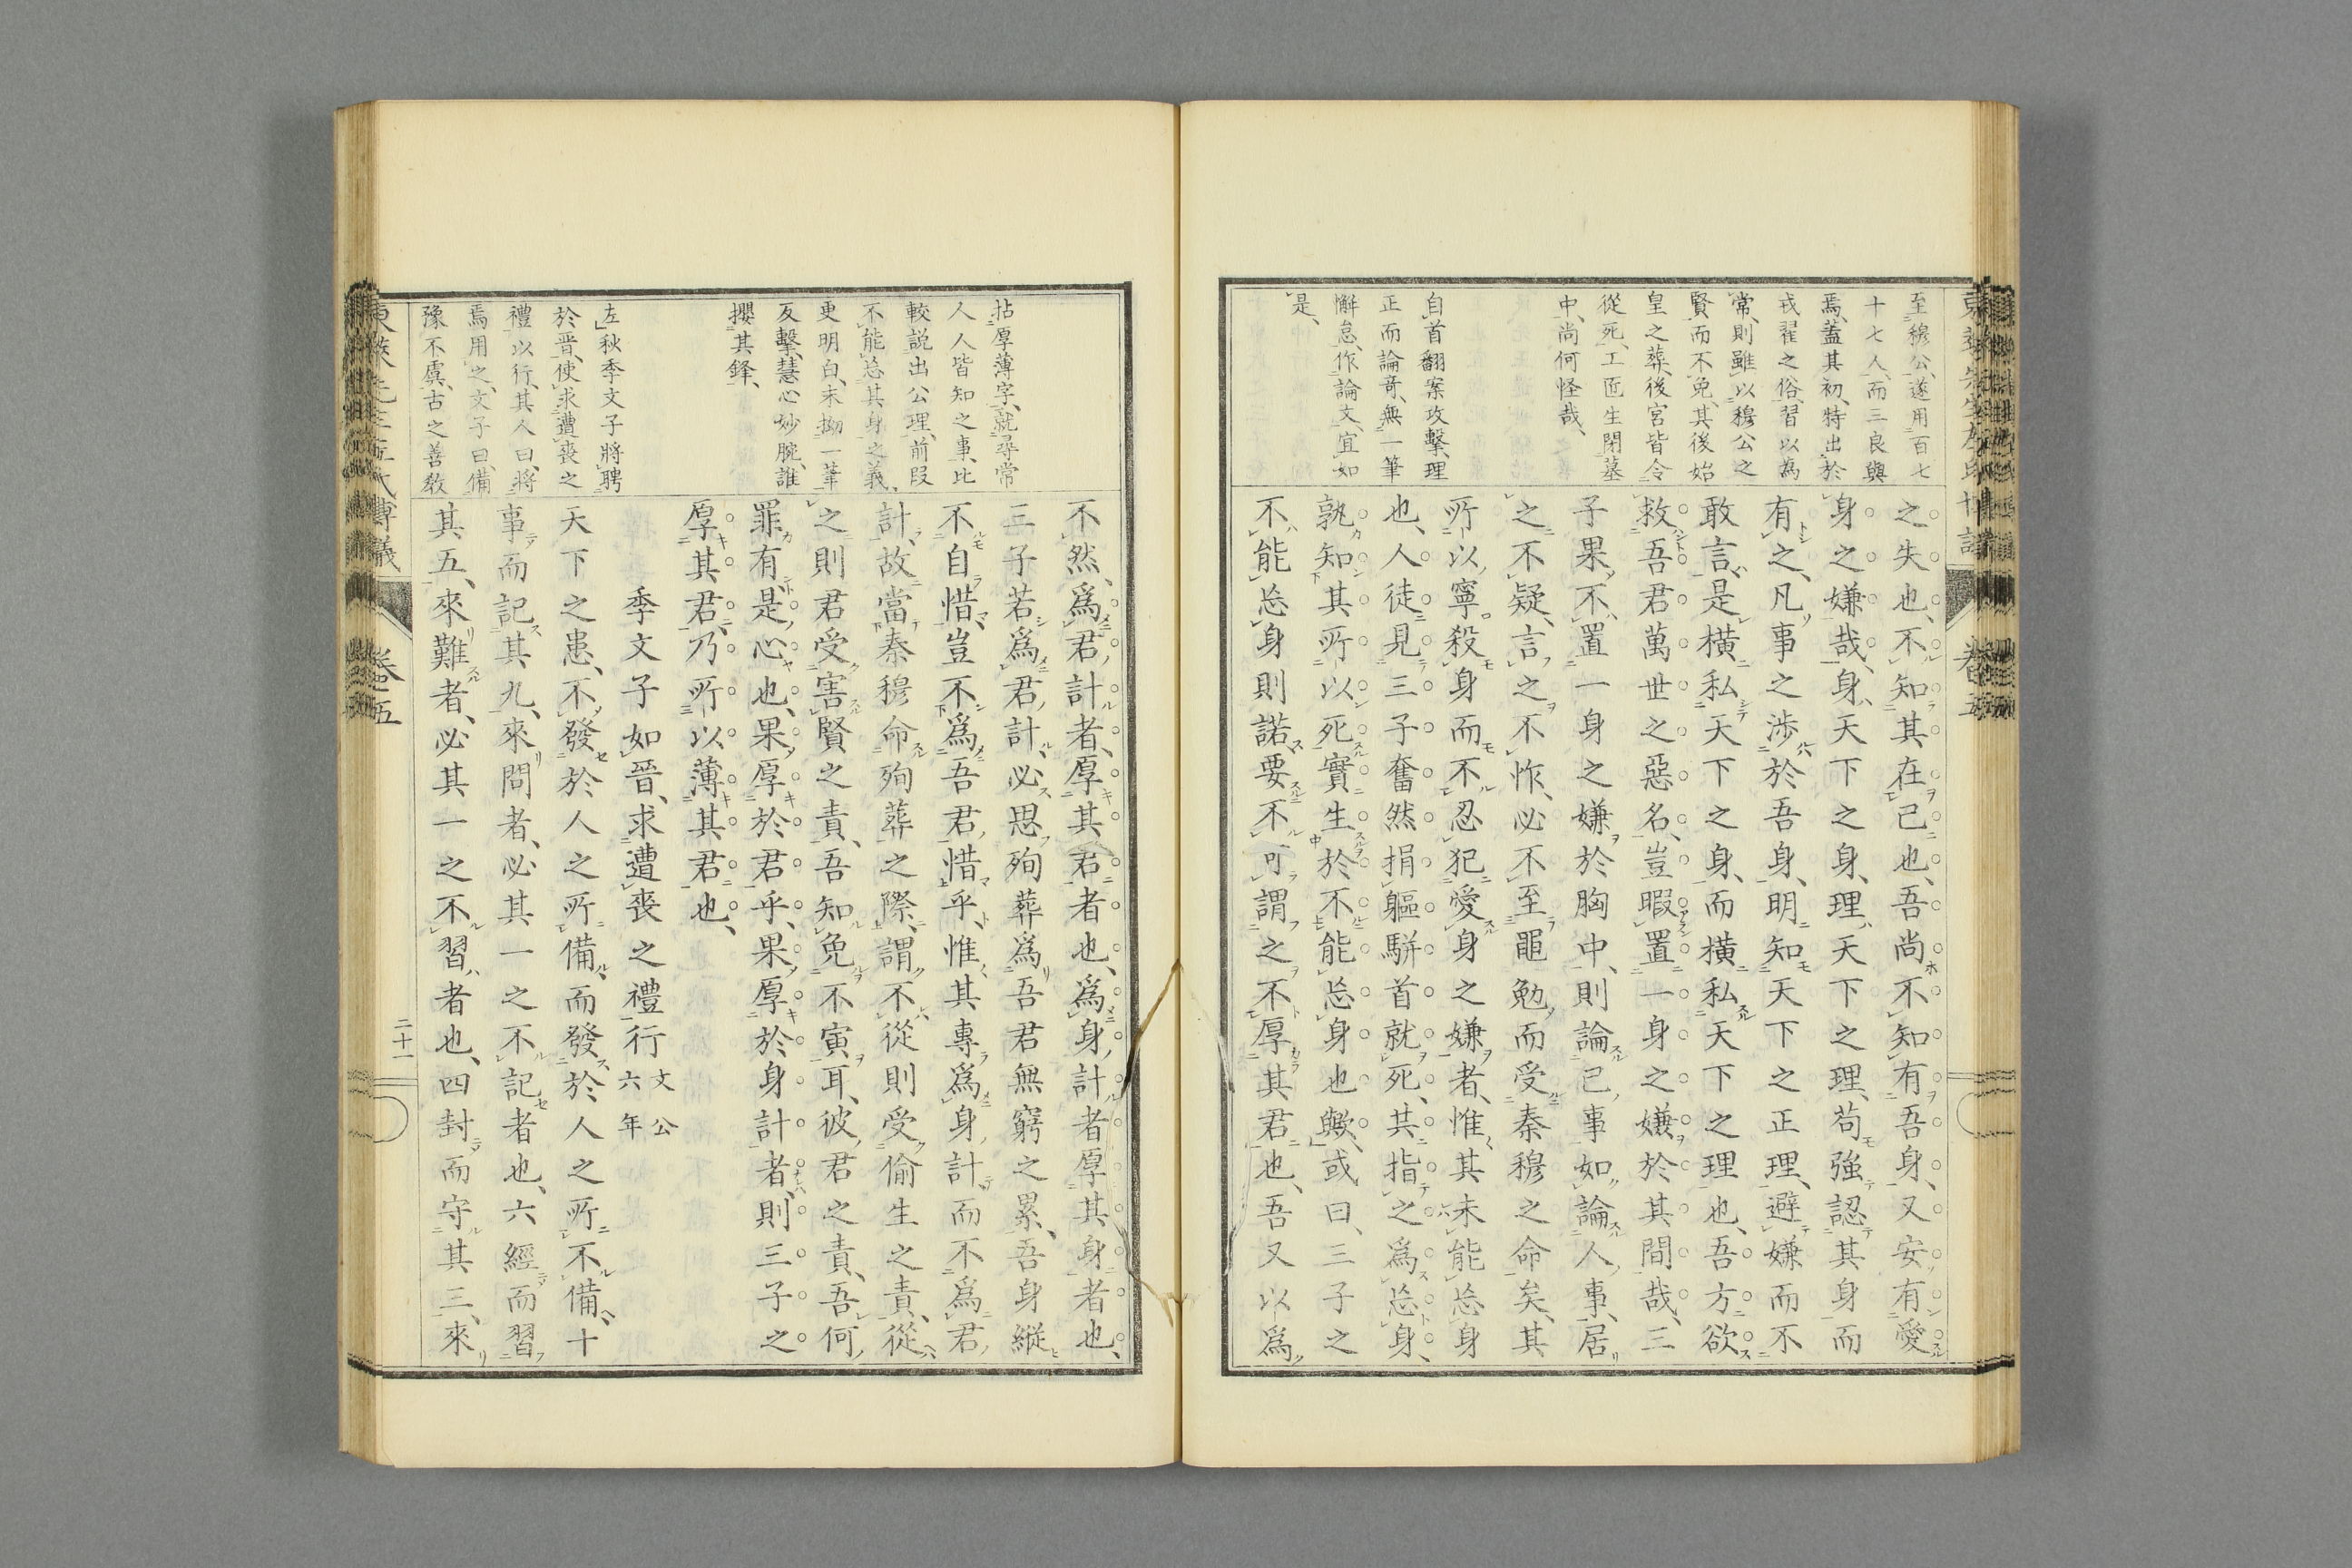 至穆公、遂用百七
十七人、而三良與
焉、蓋其初、特出於
戎翟之俗、習以為
常、則雖以穆公之
賢而不免、其後始
皇之葬、後宮皆令
從死、工匠生閉墓
中、尚何怪哉、
自首翻案攻擊、理
正而論奇、無一筆
懈怠、作論文、宜如
是、
之失也、不知其在己也、吾尚不知有吾身、又安有愛
身之嫌哉、身、天下之身、理、天下之理、苟強認其身而
有之、凡事之渉於吾身、明知天下之正理、避嫌而不
敢言、是橫私天下之身、而橫私天下之理也、吾方欲
救吾君萬世之惡名、豈暇置一身之嫌於其間哉、三
子果不置一身之嫌於胸中、則論己事如論人事、居
之不疑、言之不怍、必不至黽勉而受秦穆之命矣、其
所以寧殺身而不忍犯愛身之嫌者、惟其未能忘身
也、人徒見三子奮然捐軀駢首就死、其指之為忘身、
孰知其所以死實生於不能忘身也歟、或曰、三子之
不能忘身則諾要不可謂之不厚其君也、吾又以為
拈厚薄字、就尋常
人人皆知之事、比
較説出公理、前段
不能忘其身之義、
更明白、末拗一筆
反擊、慧心妙腕、誰
攖其鋒、
左秋季文子將聘
於晉、使求遭喪之
禮以行、其人曰、將
焉用之、文子曰、備
豫不虞、古之善教
不然、為君計者、厚其君者也、為身計者厚其身者也、
三子若為君計、必思殉葬為吾君無窮之累、吾身縱
不自惜、豈不為吾君惜乎、惟其專為身計而不為君
計、故當秦穆命殉葬之際、謂不從則受偷生之責、從
之則君受害賢之責、吾知免不寅耳、彼君之責、吾何
罪有、是心也、果厚於君乎、果厚於身計者、則三子之
厚其君、乃所以薄其君也、
季文子如晉、求遭喪之禮行 文公六年
天下之患、不發於人之所備、而發於人之所不備、十
事而記其九、來問者、必其一之不記者也、六經而習
其五、來難者、必其一之不習者也、四封而守其三、來
卷五
二十一